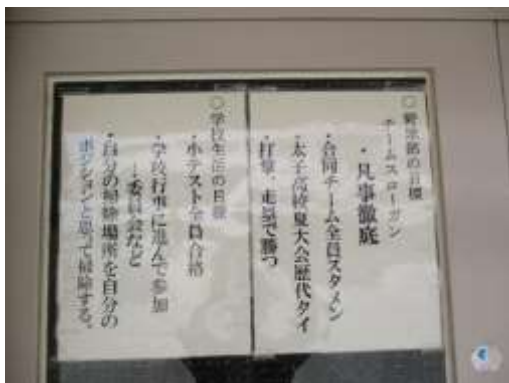 ○野球部の目標
チームスローガン
・凡事徹底
・合同チーム全員スタメン
・太子高校夏大会歴代タイ
・打撃、走塁で勝つ
○学校生活の目標
・小テスト全員合格
・学校行事に進んで参加
…委員会など
・自分の掃除場所を自分の
ポジションと思って掃除する。